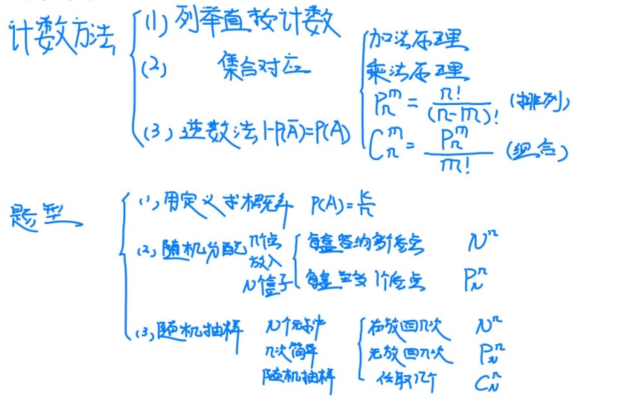 计数方法
(1) 列举直接计数
(2) 集合对应
(3) 逆数法 1-P(Ā)=P(A)
加法原理
乘法原理
Pₙᵐ = n!/(n-m)! (排列)
Cₙᵐ = Pₙᵐ/m! (组合)
题型
(1) 用定义求概率 P(A)=k/n
(2) 随机分配 n个点 放入 N个盒子
每盒容纳多个质点 Nⁿ
每盒至多1个质点 P_Nⁿ
(3) 随机抽样 N个元中 n次简单 随机抽样
有放回n次 Nⁿ
无放回n次 P_Nⁿ
任取n个 C_Nⁿ